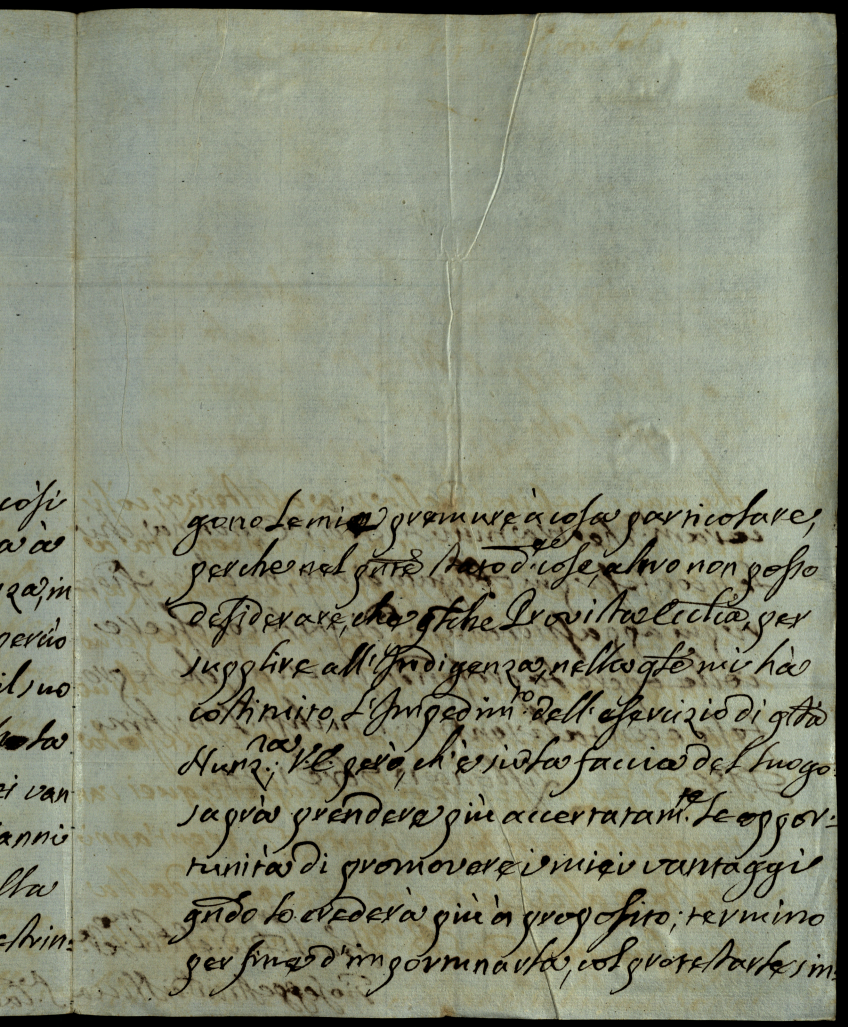 così
a à
za, in
perciò
il suo
la
ei van
anni
lla
strin=
gono le mie premure à cosa particolare,
perche nel pñte stato d cose, altro non posso
desiderare, che qlche Provista Eccliã, per
supplire all'Indigenza, nella qle mi hà
costituito, l'Impedim.to dell'esercizio di qta
Nunz.ra; V.E. però, ch'è sù la faccia del luogo
saprà prendere più accertatam.te le oppor=
tunità di promovere i miei vantaggi
qndo lo crederà più à proposito; termino
per fine d'importunarla, col protestarle sin=